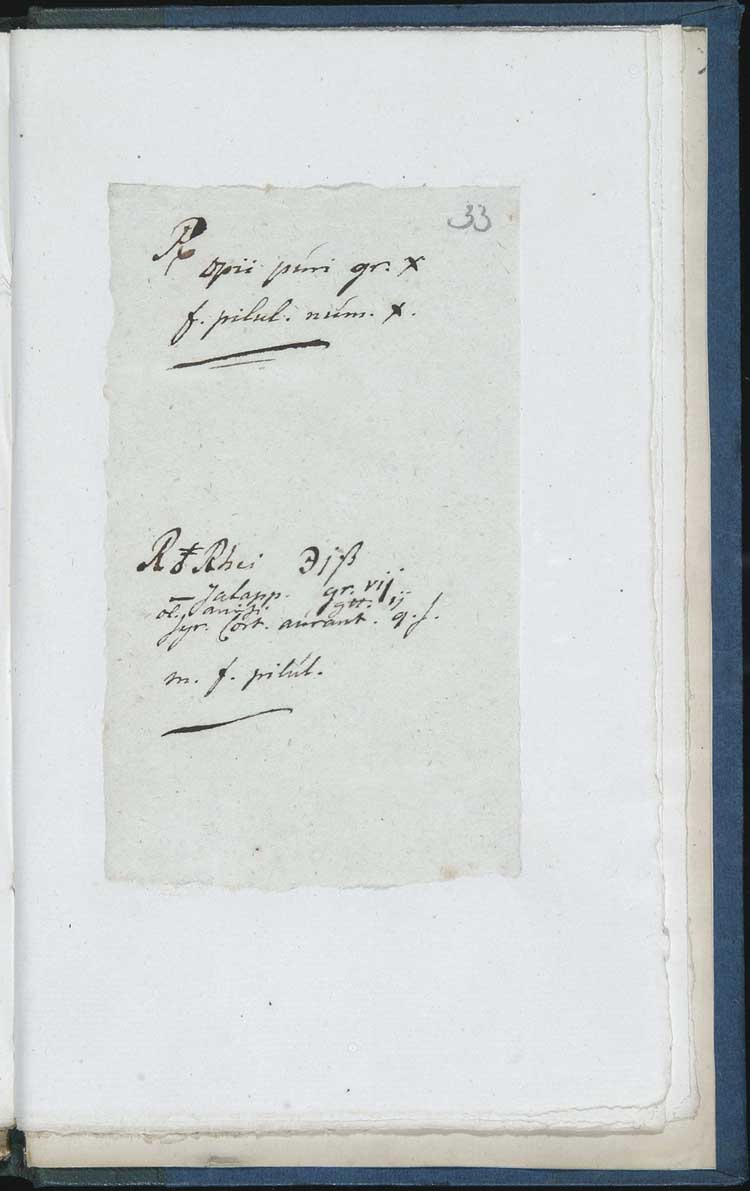 33
℞
opii puri gr. x
f. pilul. num. x.
℞ ♁ Rhei ℈jß
— Jalapp. gr. vij
ol. anisi. gtt. ij
syr. Cort. aurant. q. s.
m. f. pilul.